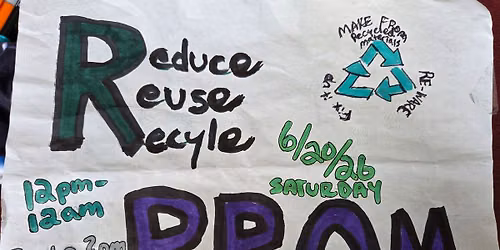 Reduce
Reuse
Recyle
MAKE FROM
Recycled
materials
RE-WARE
Fix it up
6/20/26
SATURDAY
12pm-
12am
PROM